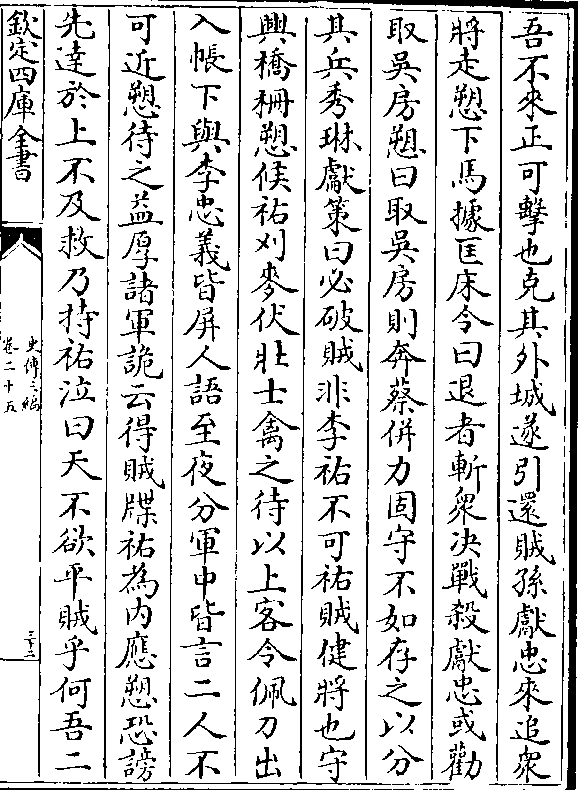 吾不來正可擊也克其外城遂引還賊孫獻忠來追衆
將走愬下馬據匡床令曰退者斬衆决戰殺獻忠或勸
取吳房愬曰取吳房則奔蔡併力固守不如存之以分
其兵秀琳獻策曰必破賊非李祐不可祐賊健將也守
興橋柵愬候祐刈麥伏壯士禽之待以上客令佩刀出
入帳下與李忠義皆屏人語至夜分軍中皆言二人不
可近愬待之益厚諸軍詭云得賊牒祐為内應愬恐謗
先達於上不及救乃持祐泣曰天不欲平賊乎何吾二
欽定四庫全書
史傳三編
卷二十五
三十二